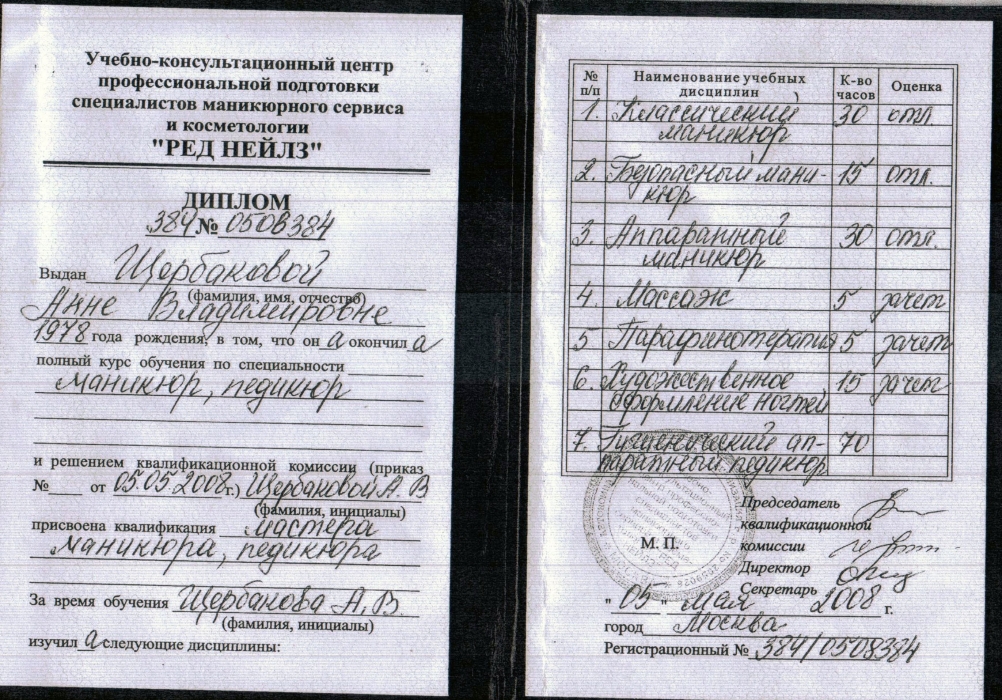 Учебно-консультационный центр
профессиональной подготовки
специалистов маникюрного сервиса
и косметологии
"РЕД НЕЙЛЗ"
ДИПЛОМ
384 № 0508384
Выдан Щербаковой
(фамилия, имя, отчество)
Анне Владимировне
1978 года рождения, в том, что он а окончил а
полный курс обучения по специальности
маникюр, педикюр
и решением квалификационной комиссии (приказ
№ от 05.05.2008 г.) Щербаковой А. В
(фамилия, инициалы)
присвоена квалификация мастера
маникюра, педикюра
За время обучения Щербакова А. В.
(фамилия, инициалы)
изучил а следующие дисциплины:
№ п/п Наименование учебных дисциплин К-во часов Оценка
1. Классический 30 отл
маникюр
2. Безопасный мани- 15 отл.
кюр
3. Аппаратный 30 отл.
маникюр
4. Массаж 5 зачет
5 Парафинотерапия 5 зачет
6. Художественное 15 зачет
оформление ногтей
7. Гигиенический ап- 70
паратный педикюр
Председатель
квалификационной
комиссии
М. П.
Директор
Секретарь
" 05 " мая 2008 г.
город Москва
Регистрационный № 384/0508384